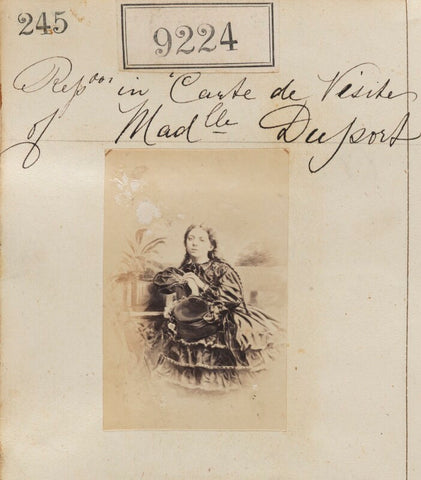 245
9224
Rep^ons in Carte de Visite
of Mad^lle Duport